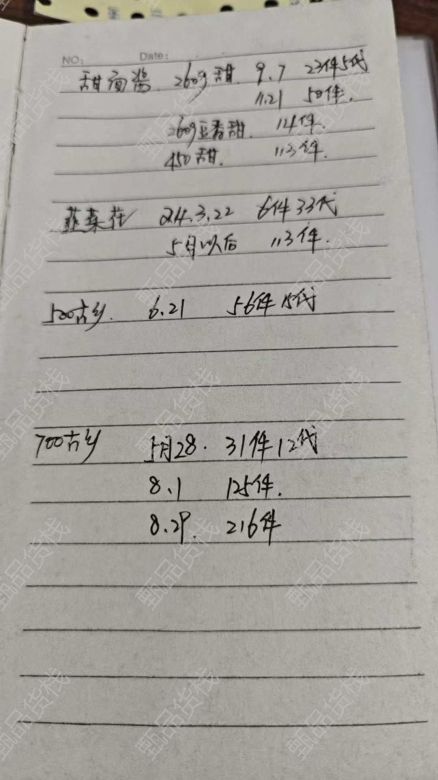 NO: Date:
甜面酱 260g甜 9.7 23件5代
11.21 50件.
260g豆香甜. 14件.
450甜. 113件.
韭菜花 24.3.22 6件33代
5月以后 113件.
500古乡. 6.21 56件15代
700古乡 5月28. 31件12代
8.1 125件.
8.29. 216件
甄品货栈